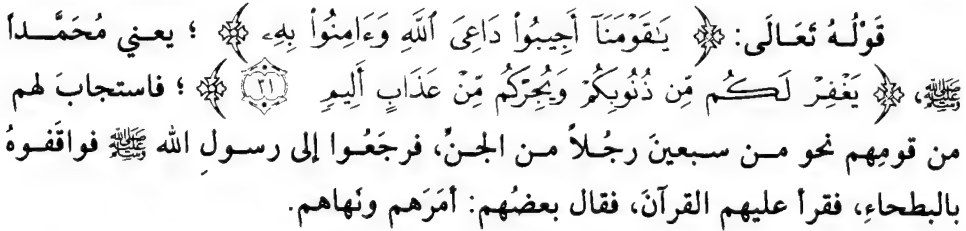 قَوْلُهُ تَعَالَى: ﴿ يَـٰقَوْمَنَآ أَجِيبُوا۟ دَاعِىَ ٱللَّهِ وَءَامِنُوا۟ بِهِۦ ﴾ ؛ يعني مُحَمَّـداً
ﷺ، ﴿ يَغْفِرْ لَكُم مِّن ذُنُوبِكُمْ وَيُجِرْكُم مِّنْ عَذَابٍ أَلِيمٍ ٣١ ﴾ ؛ فاستجابَ لهم
من قومِهم نحو مـن سـبعينَ رجُـلاً مـن الجـنِّ، فرجَعُـوا إلى رسـولِ الله ﷺ فواقَفـوهُ
بالبطحاءِ، فقرأ عليهم القرآنَ، فقال بعضُهم: أمَرَهم ونَهاهم.